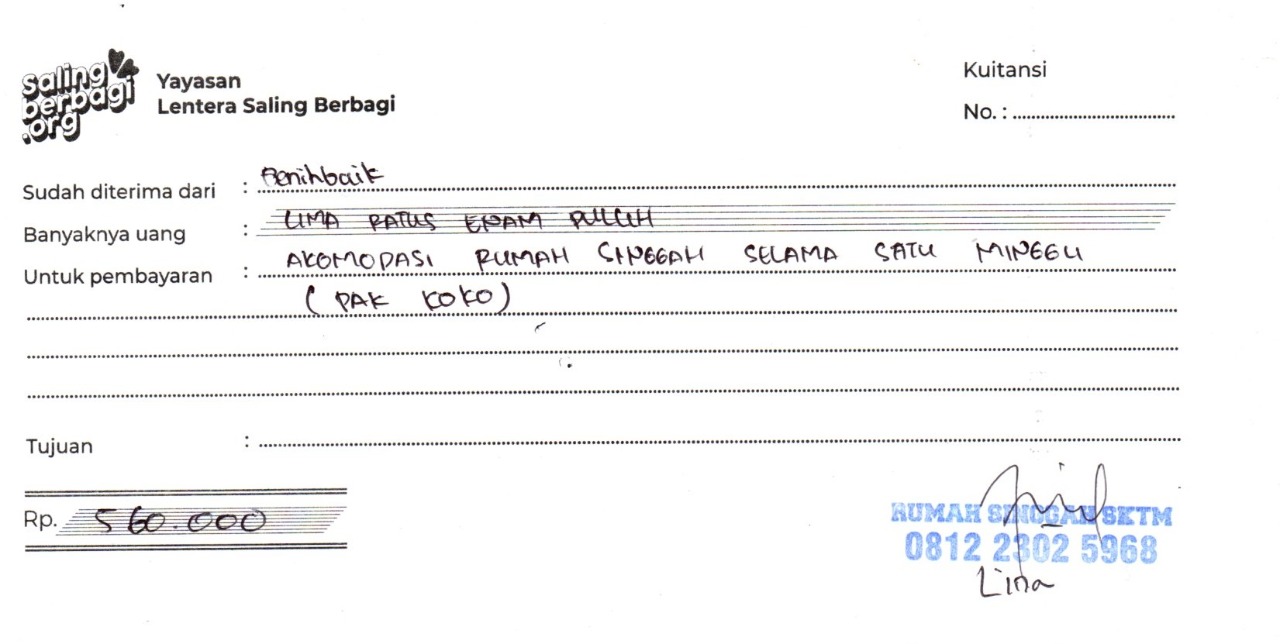 saling
berbagi
.org
Yayasan
Lentera Saling Berbagi
Kuitansi
No. :
Sudah diterima dari : Benihbaik
Banyaknya uang : LIMA RATUS ENAM PULUH
Untuk pembayaran : AKOMODASI RUMAH SINGGAH SELAMA SATU MINGGU
( PAK KOKO )
Tujuan :
Rp. 560.000
RUMAH SINGGAH SKTM
0812 2302 5968
Lina